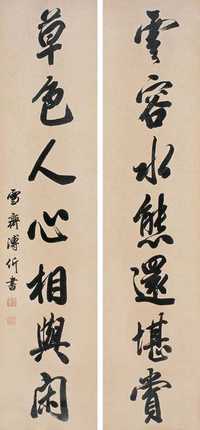 雲容水態還堪賞
草色人心相與閑
雪齋溥伒書